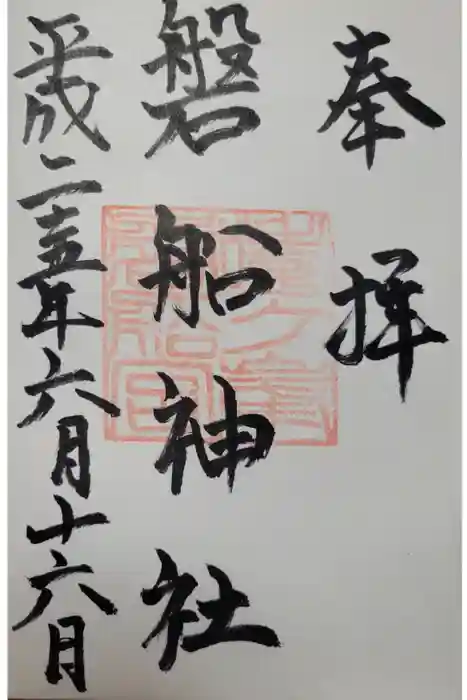 奉拝
磐船神社
平成二十五年六月十六日